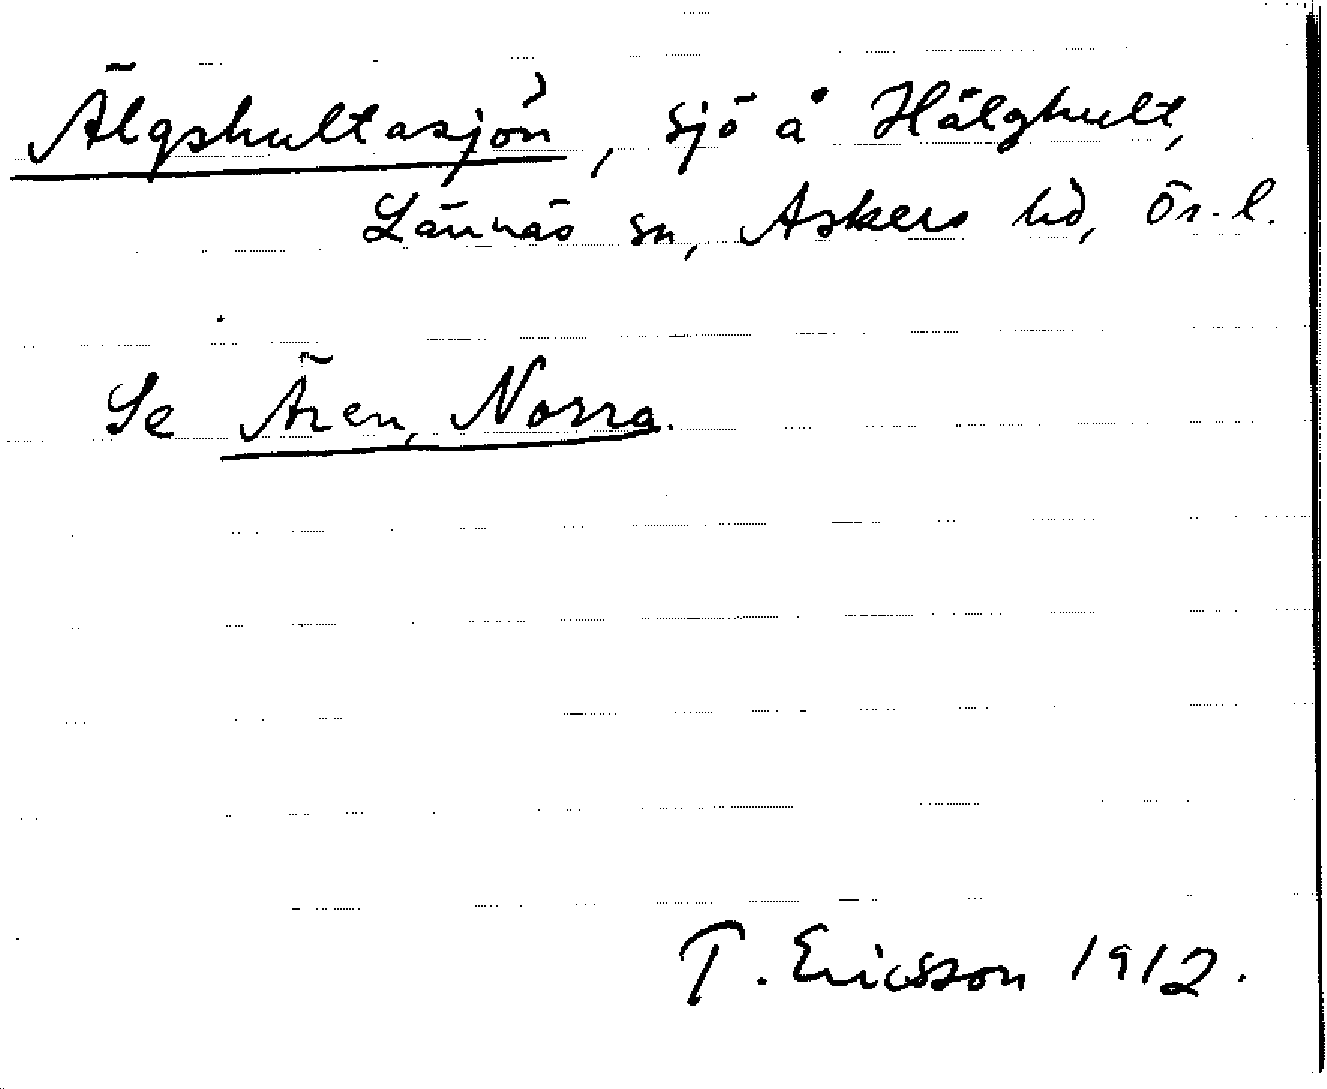 Älgshultasjön, sjö å Hälghult,
Lännäs sn, Askers hd, Ör. l.
Se Ären, Norra.
T. Ericsson 1912.